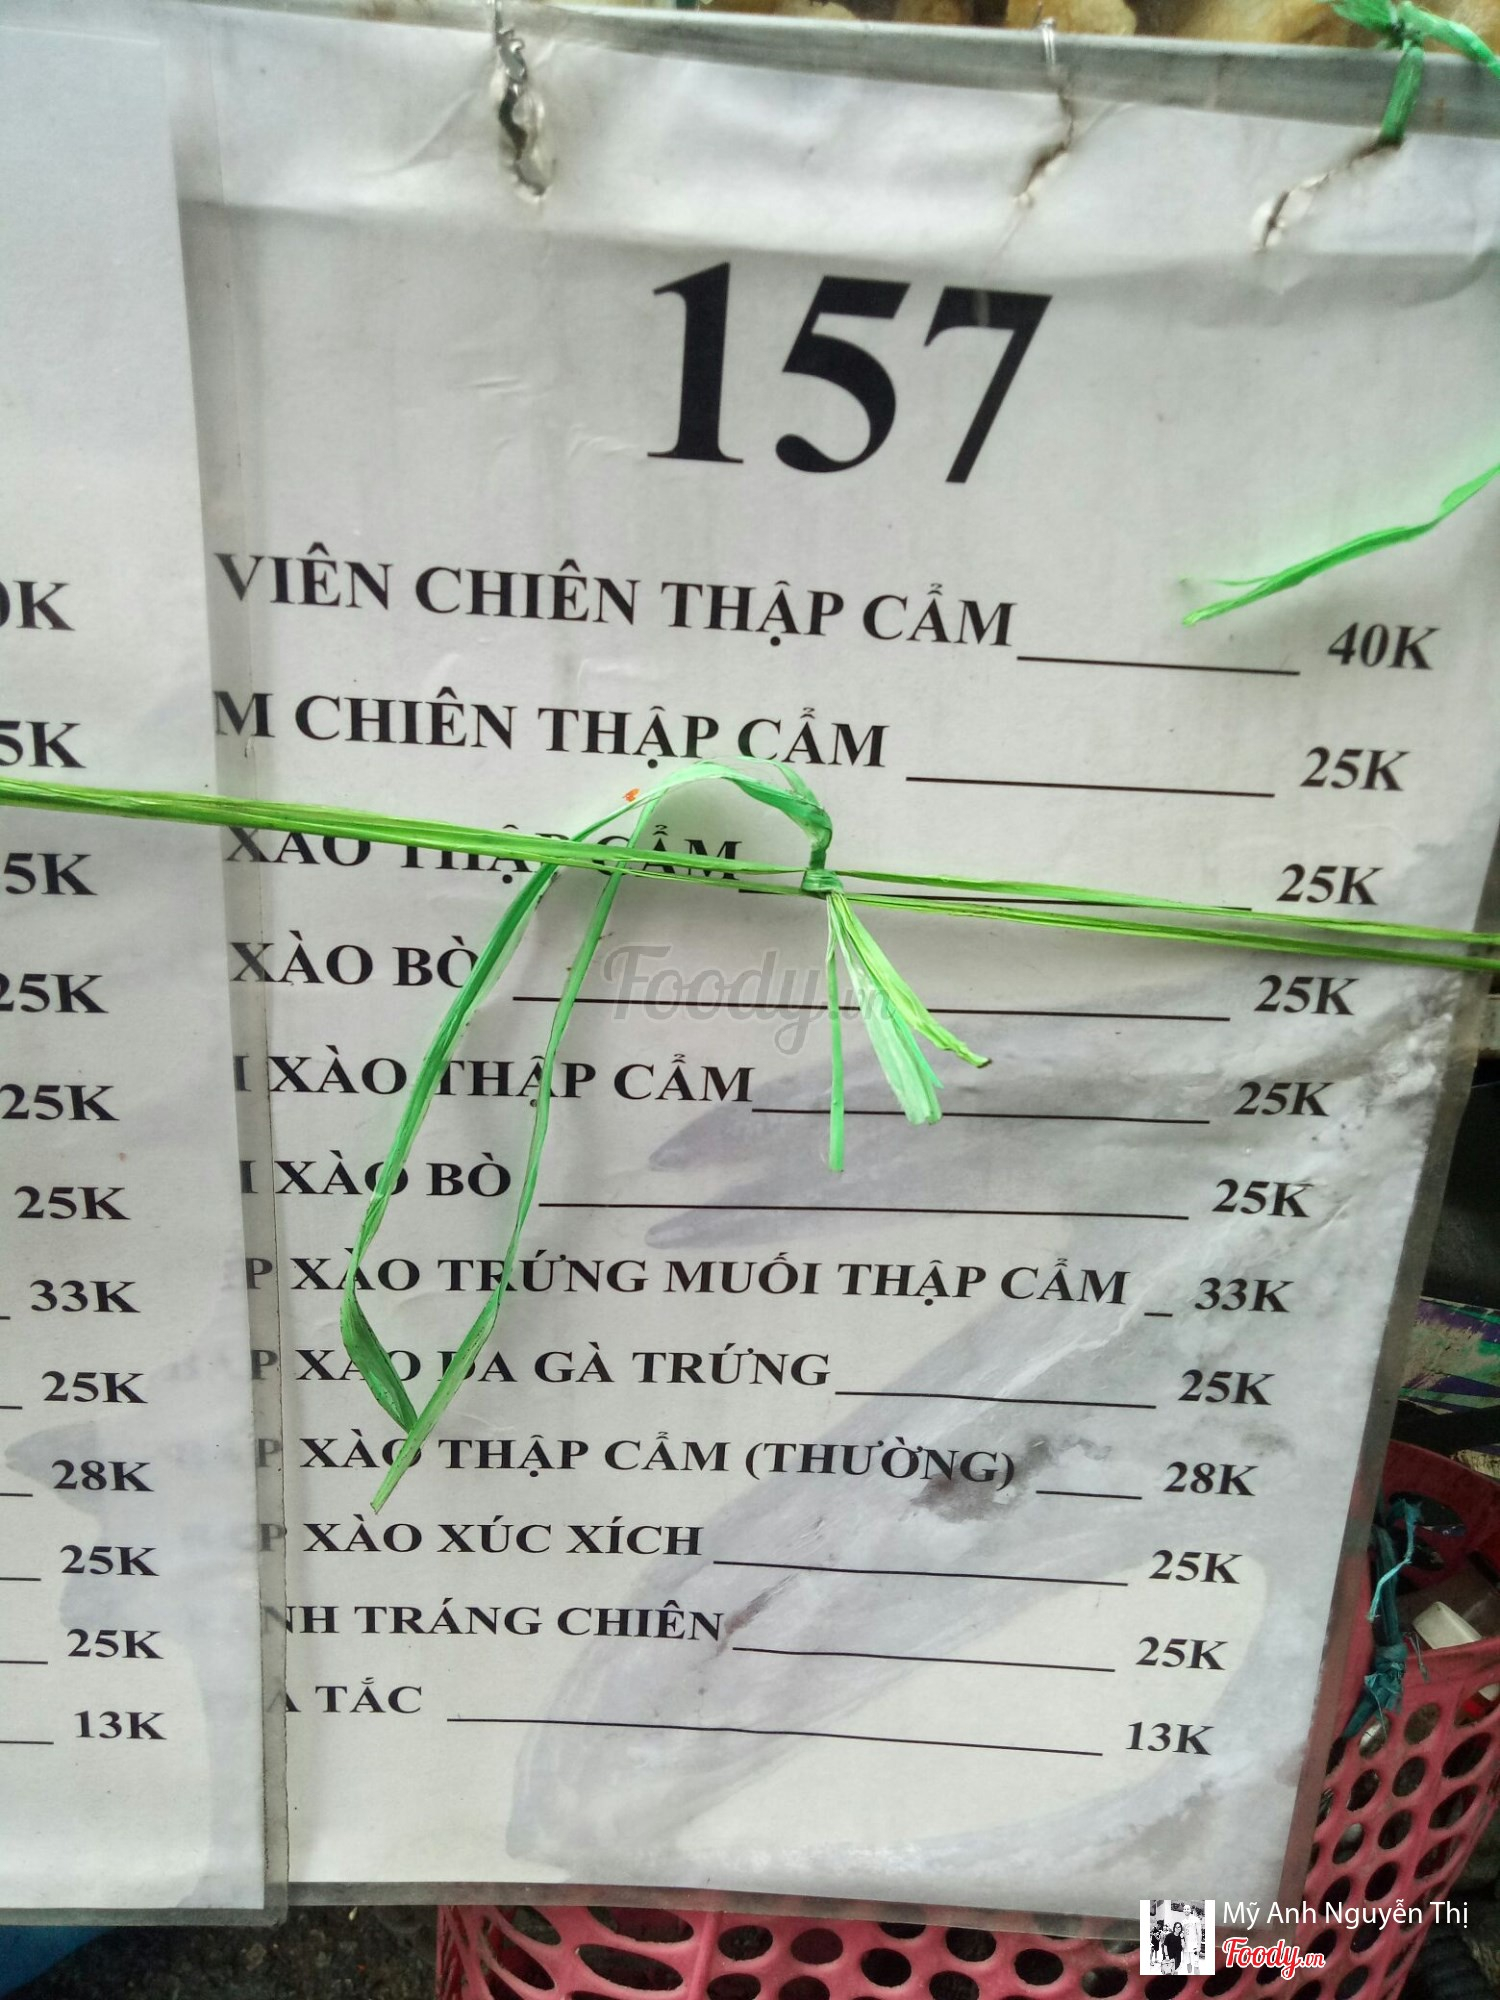 157
VIÊN CHIÊN THẬP CẨM 40K
M CHIÊN THẬP CẨM 25K
XÀO THẬP CẨM 25K
XÀO BÒ 25K
XÀO THẬP CẨM 25K
XÀO BÒ 25K
P XÀO TRỨNG MUỐI THẬP CẨM 33K
P XÀO DA GÀ TRỨNG 25K
P XÀO THẬP CẨM (THƯỜNG) 28K
P XÀO XÚC XÍCH 25K
NH TRÁNG CHIÊN 25K
A TẮC 13K
0K
5K
5K
25K
25K
25K
33K
25K
28K
25K
25K
13K
Foody.vn
Mỹ Anh Nguyễn Thị
Foody.vn